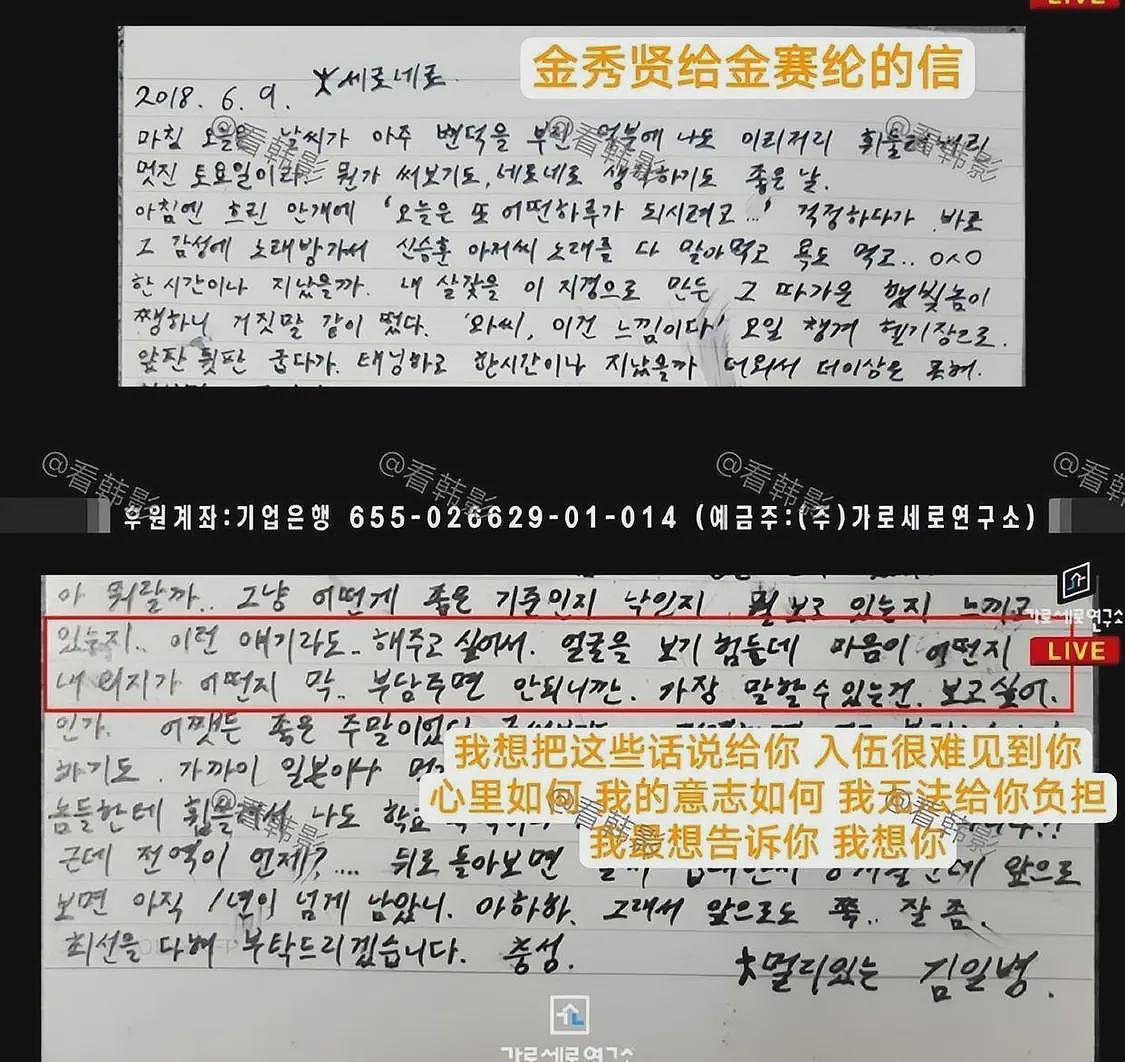 LIVE
金秀贤给金赛纶的信
2018. 6. 9. 세로네로.
마침 오늘은 날씨가 아주 변덕을 부린 덕분에 나도 이리저리
멋진 토요일이라. 뭔가 써보기도, 세로네로 생각하기도 좋은 날.
아침엔 흐린 안개에 '오늘은 또 어떤하루가 되시려고...' 걱정하다가 바로
그 감성에 노래방가서 신승훈 아저씨 노래를 다 말아먹고 욕도 먹고..
한 시간이나 지났을까. 내 살갗을 이 지경으로 만든 그 따가운 햇빛놈이
쨍하니 거짓말 같이 떴다. '와씨, 이건 느낌이다' 오일 챙겨 헬기장으로.
앞판 뒷판 굽다가. 태닝하고 한시간이나 지났을까 더워서 더이상은 못해.
@看韩影
@看韩影
@看韩影
@看韩影
@看韩影
@看韩影
@看韩影
후원계좌:기업은행 655-026629-01-014 (예금주:(주)가로세로연구소)
아 뭐랄까.. 그냥 어떤게 좋은 기준인지 낙인지 뭘 보고 있는지 느끼고
가로세로연구소
있는지.. 이런 얘기라도.. 해주고 싶어서. 얼굴을 보기 힘든데 마음이 어떤지
LIVE
내 의지가 어떤지 막.. 부담주면 안되니깐. 가장 말할 수 있는건. 보고싶어.
인가. 어쨋든 좋은 주말이었
我想把这些话说给你 入伍很难见到你
하기도. 가까이 일본이나
心里如何 我的意志如何 我无法给你负担
놈들한테 나도
我最想告诉你 我想你
근데 전역이 언제?.... 뒤로 돌아보면 앞으로
보면 아직 1년이 넘게 남았니. 아하하. 그래서 앞으로도 쭉.. 잘 좀.
최선을 다해 부탁드리겠습니다. 충성.
멀리있는 김일병.
@看韩影
@看韩影
@看韩影
가로세로연구소